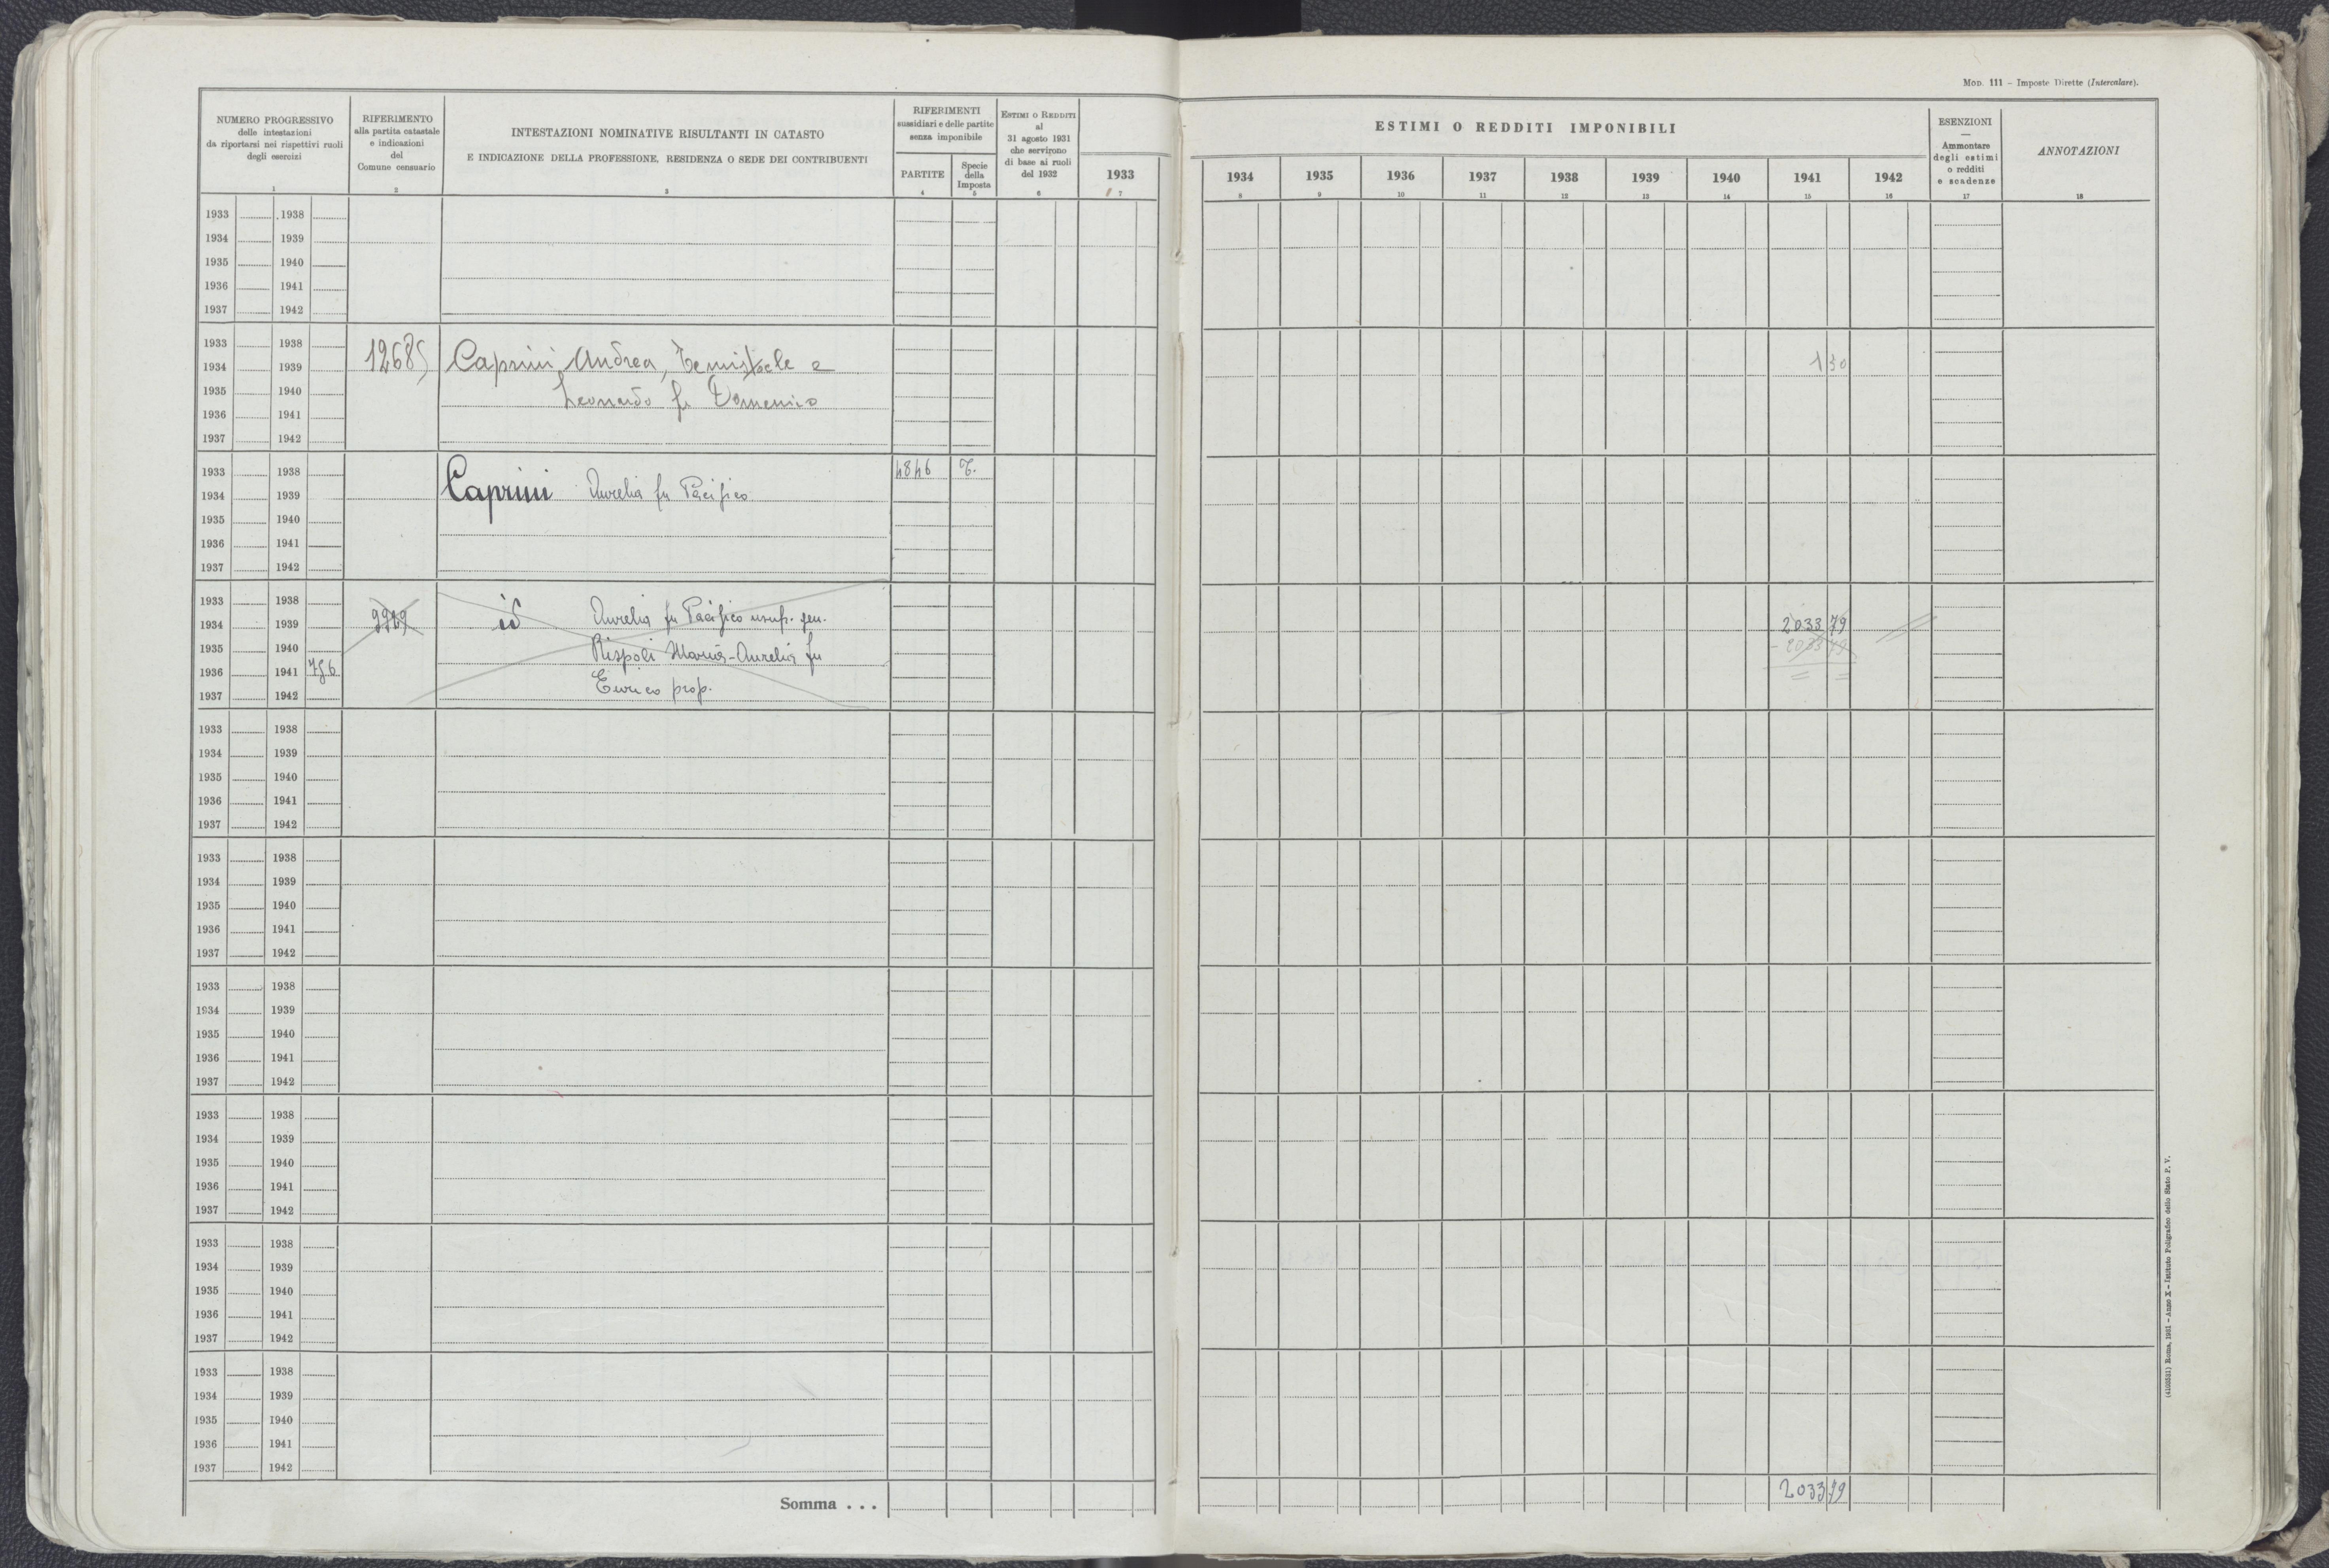 Mod. 111 – Imposte Dirette (Intercalare).
NUMERO PROGRESSIVO
delle intestazioni
da riportarsi nei rispettivi ruoli
degli esercizi
1
RIFERIMENTO
alla partita catastale
e indicazioni
del
Comune censuario
2
INTESTAZIONI NOMINATIVE RISULTANTI IN CATASTO
E INDICAZIONE DELLA PROFESSIONE, RESIDENZA O SEDE DEI CONTRIBUENTI
3
RIFERIMENTI
sussidiari e delle partite
senza imponibile
PARTITE
4
Specie
della
Imposta
5
Estimi o Redditi
al
31 agosto 1931
che servirono
di base ai ruoli
del 1932
6
1933
7
ESTIMI O REDDITI IMPONIBILI
1934 1935 1936 1937 1938 1939 1940 1941 1942
8 9 10 11 12 13 14 15 16
ESENZIONI
—
Ammontare
degli estimi
o redditi
e scadenze
17
ANNOTAZIONI
18
1933 1938
1934 1939
1935 1940
1936 1941
1937 1942
1933 1938
1934 1939 12685 Caprini Andrea, Temistocle e 1 30
1935 1940 Leonardo fu Domenico
1936 1941
1937 1942
1933 1938 4846 T.
1934 1939 Caprini Aurelia fu Pacifico
1935 1940
1936 1941
1937 1942
1933 1938
1934 1939 id Aurelia fu Pacifico usuf. gen. 2033 79
1935 1940 Rispoli Maria-Aurelia fu - 2033 79
1936 1941 756
1937 1942 Enrico prop.
1933 1938
1934 1939
1935 1940
1936 1941
1937 1942
1933 1938
1934 1939
1935 1940
1936 1941
1937 1942
1933 1938
1934 1939
1935 1940
1936 1941
1937 1942
1933 1938
1934 1939
1935 1940
1936 1941
1937 1942
1933 1938
1934 1939
1935 1940
1936 1941
1937 1942
1933 1938
1934 1939
1935 1940
1936 1941
1937 1942
Somma . . . 2033 79
(4103531) Roma, 1931 – Anno X – Istituto Poligrafico dello Stato P. V.